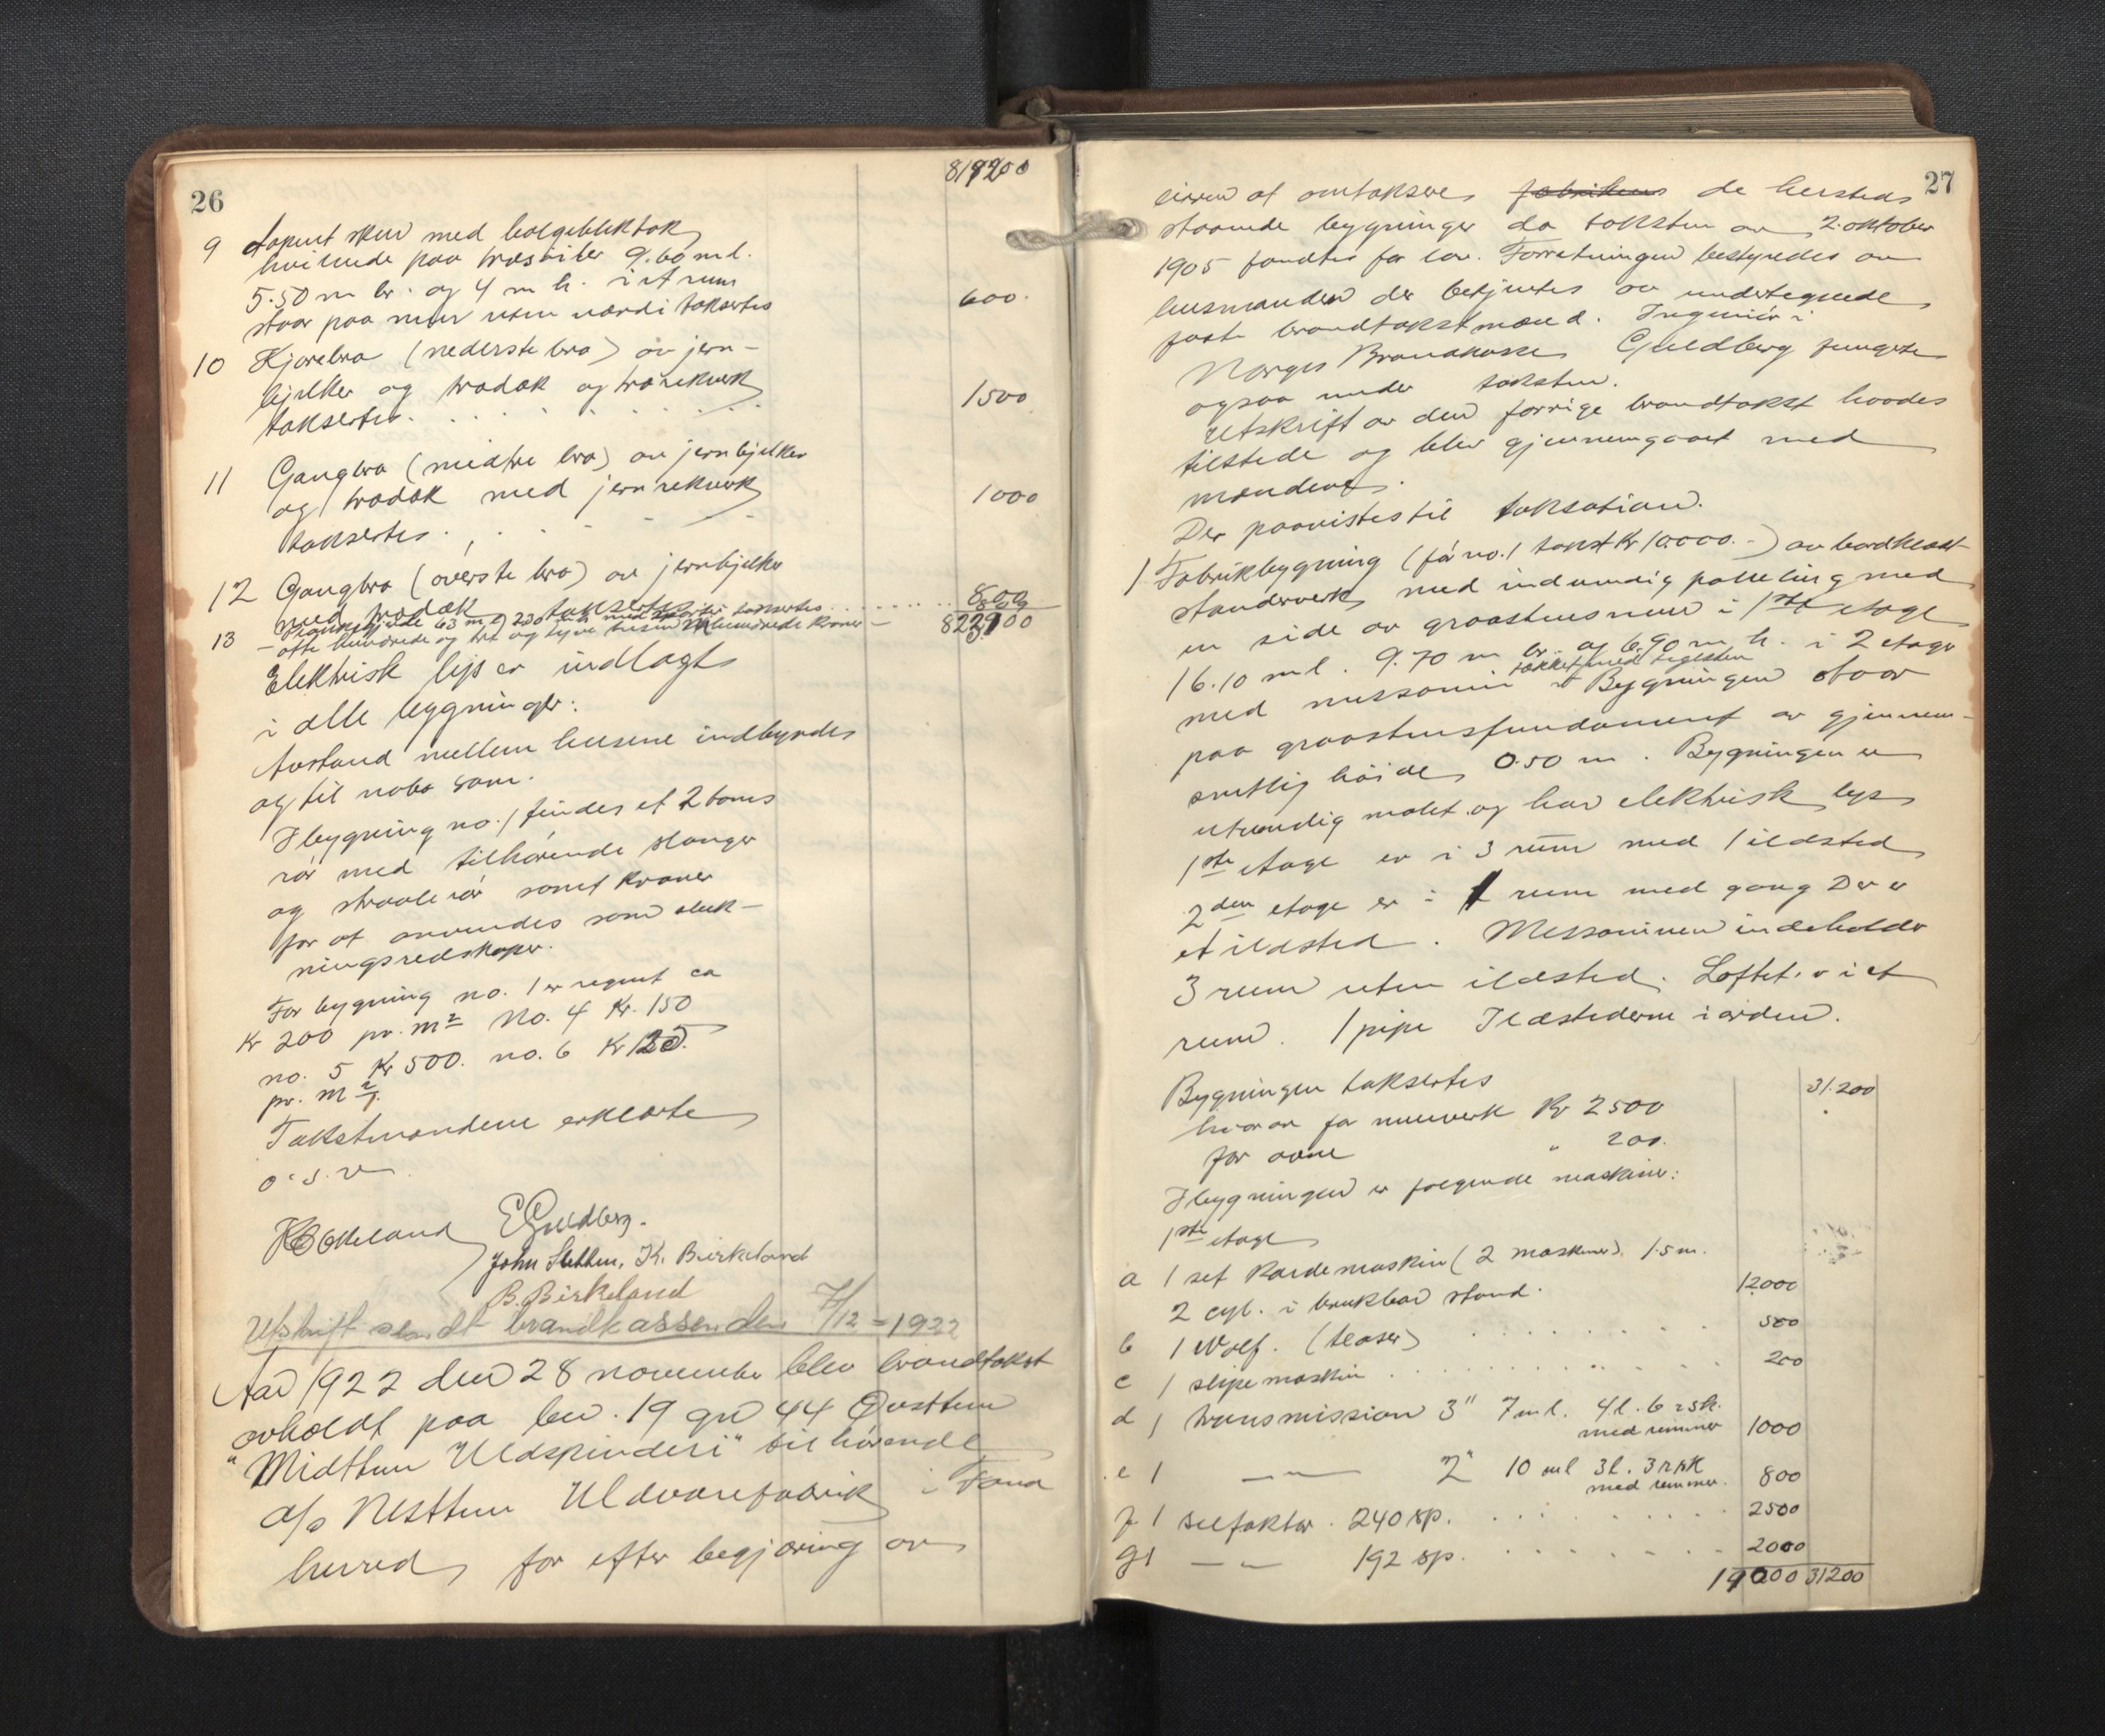 26
819200
9 Aapent skur med bølgebliktak
hvilende paa træstolper 9.60 m l.
5.50 m br. og 4 m h. i et rum
staar paa mur uten værdi taksertes 600.
10 Kjørebro (nederste bro) av jern-
bjelker og trædæk og trærekverk
taksertes. 1500
11 Gangbro (midtre bro) av jernbjelker
og trædæk med jernrekverk
taksertes. 1000
12 Gangbro (øverste bro) av jernbjelker
med trædæk taksertes 800
13 63 m l. taksertes 800
– otte hundrede og tre og tyve tusen hundrede kroner –
Elektrisk lys er indlagt
i alle bygninger.
Avstand mellem husene indbyrdes
og til nabo som.
I bygning no. 1 findes et 2 toms
rør med tilhørende slanger
og straalerør samt kraner
for at anvendes som sluk-
ningsredskaper.
For bygning no. 1 er regnet ca
Kr 200 pr. m² No. 4 Kr. 150
no. 5 Kr 500. no. 6 Kr 125.
pr. m².
Takstmændene erklærte
o. s. v.
E Guldberg.
John Sletten, K. Birkeland
B. Birkeland
Utskrift sendt brandkassen den 7/12 – 1922
Aar 1922 den 28 november blev brandtakst
avholdt paa br. 19 gn 44 Øvsttun
"Midttun Uldspinderi" tilhørende
A/s Nesttun Uldvarefabrik i Fana
herred, for efter begjæring av
27
eieren at omtaksere fabrikens de hersteds
staaende bygninger da taksten av 2. oktober
1905 fandtes for lav. Forretningen bestyredes av
lensmanden der betjentes av undertegnede
faste brandtakstmænd. Ingeniør i
Norges Brandkasse Guldberg fungerte
ogsaa under taksten.
Utskrift av den forrige brandtakst havdes
tilstede og blev gjennemgaaet med
mændene.
Der paavistes til taksation.
1 Fabrikbygning (før no. 1 takst Kr 10000.-) av bordklædt
standerverk med indvendig paneling med
en side av graastensmur i 1ste etage
16.10 m l. 9.70 m br. og 6.90 m h. i 2 etager
tækket med teglsten
med messanin Bygningen staar
paa graastensfundament av gjennem-
snitlig høide 0.50 m. Bygningen er
utvendig malet og har elektrisk lys
1ste etage er i 3 rum med 1 ildsted
2den etage er i 1 rum med gang Der er
et ildsted. Messaninen indeholder
3 rum uten ildsted. Loftet er i et
rum. 1 pipe Ildstederne i orden.
Bygningen taksertes 31.200
hvorav for murverk Kr 2500
for ovne " 200.
I bygningen er følgende maskiner:
1ste etage
a 1 set Kardemaskin (2 maskiner) 1.5 m.
2 cyl. i brukbar stand. 12000
b 1 Wolf. (teaser) 500
c 1 slipemaskin 200
d 1 transmission 3" 7 m l. 4 l. 6 rsk.
med remmer 1000
e 1 —"— 2" 10 m l 3 l. 3 rsk
med remmer. 800
f 1 selfaktor. 240 sp. 2500
g 1 —"— 192 sp. 2000
19000 31200